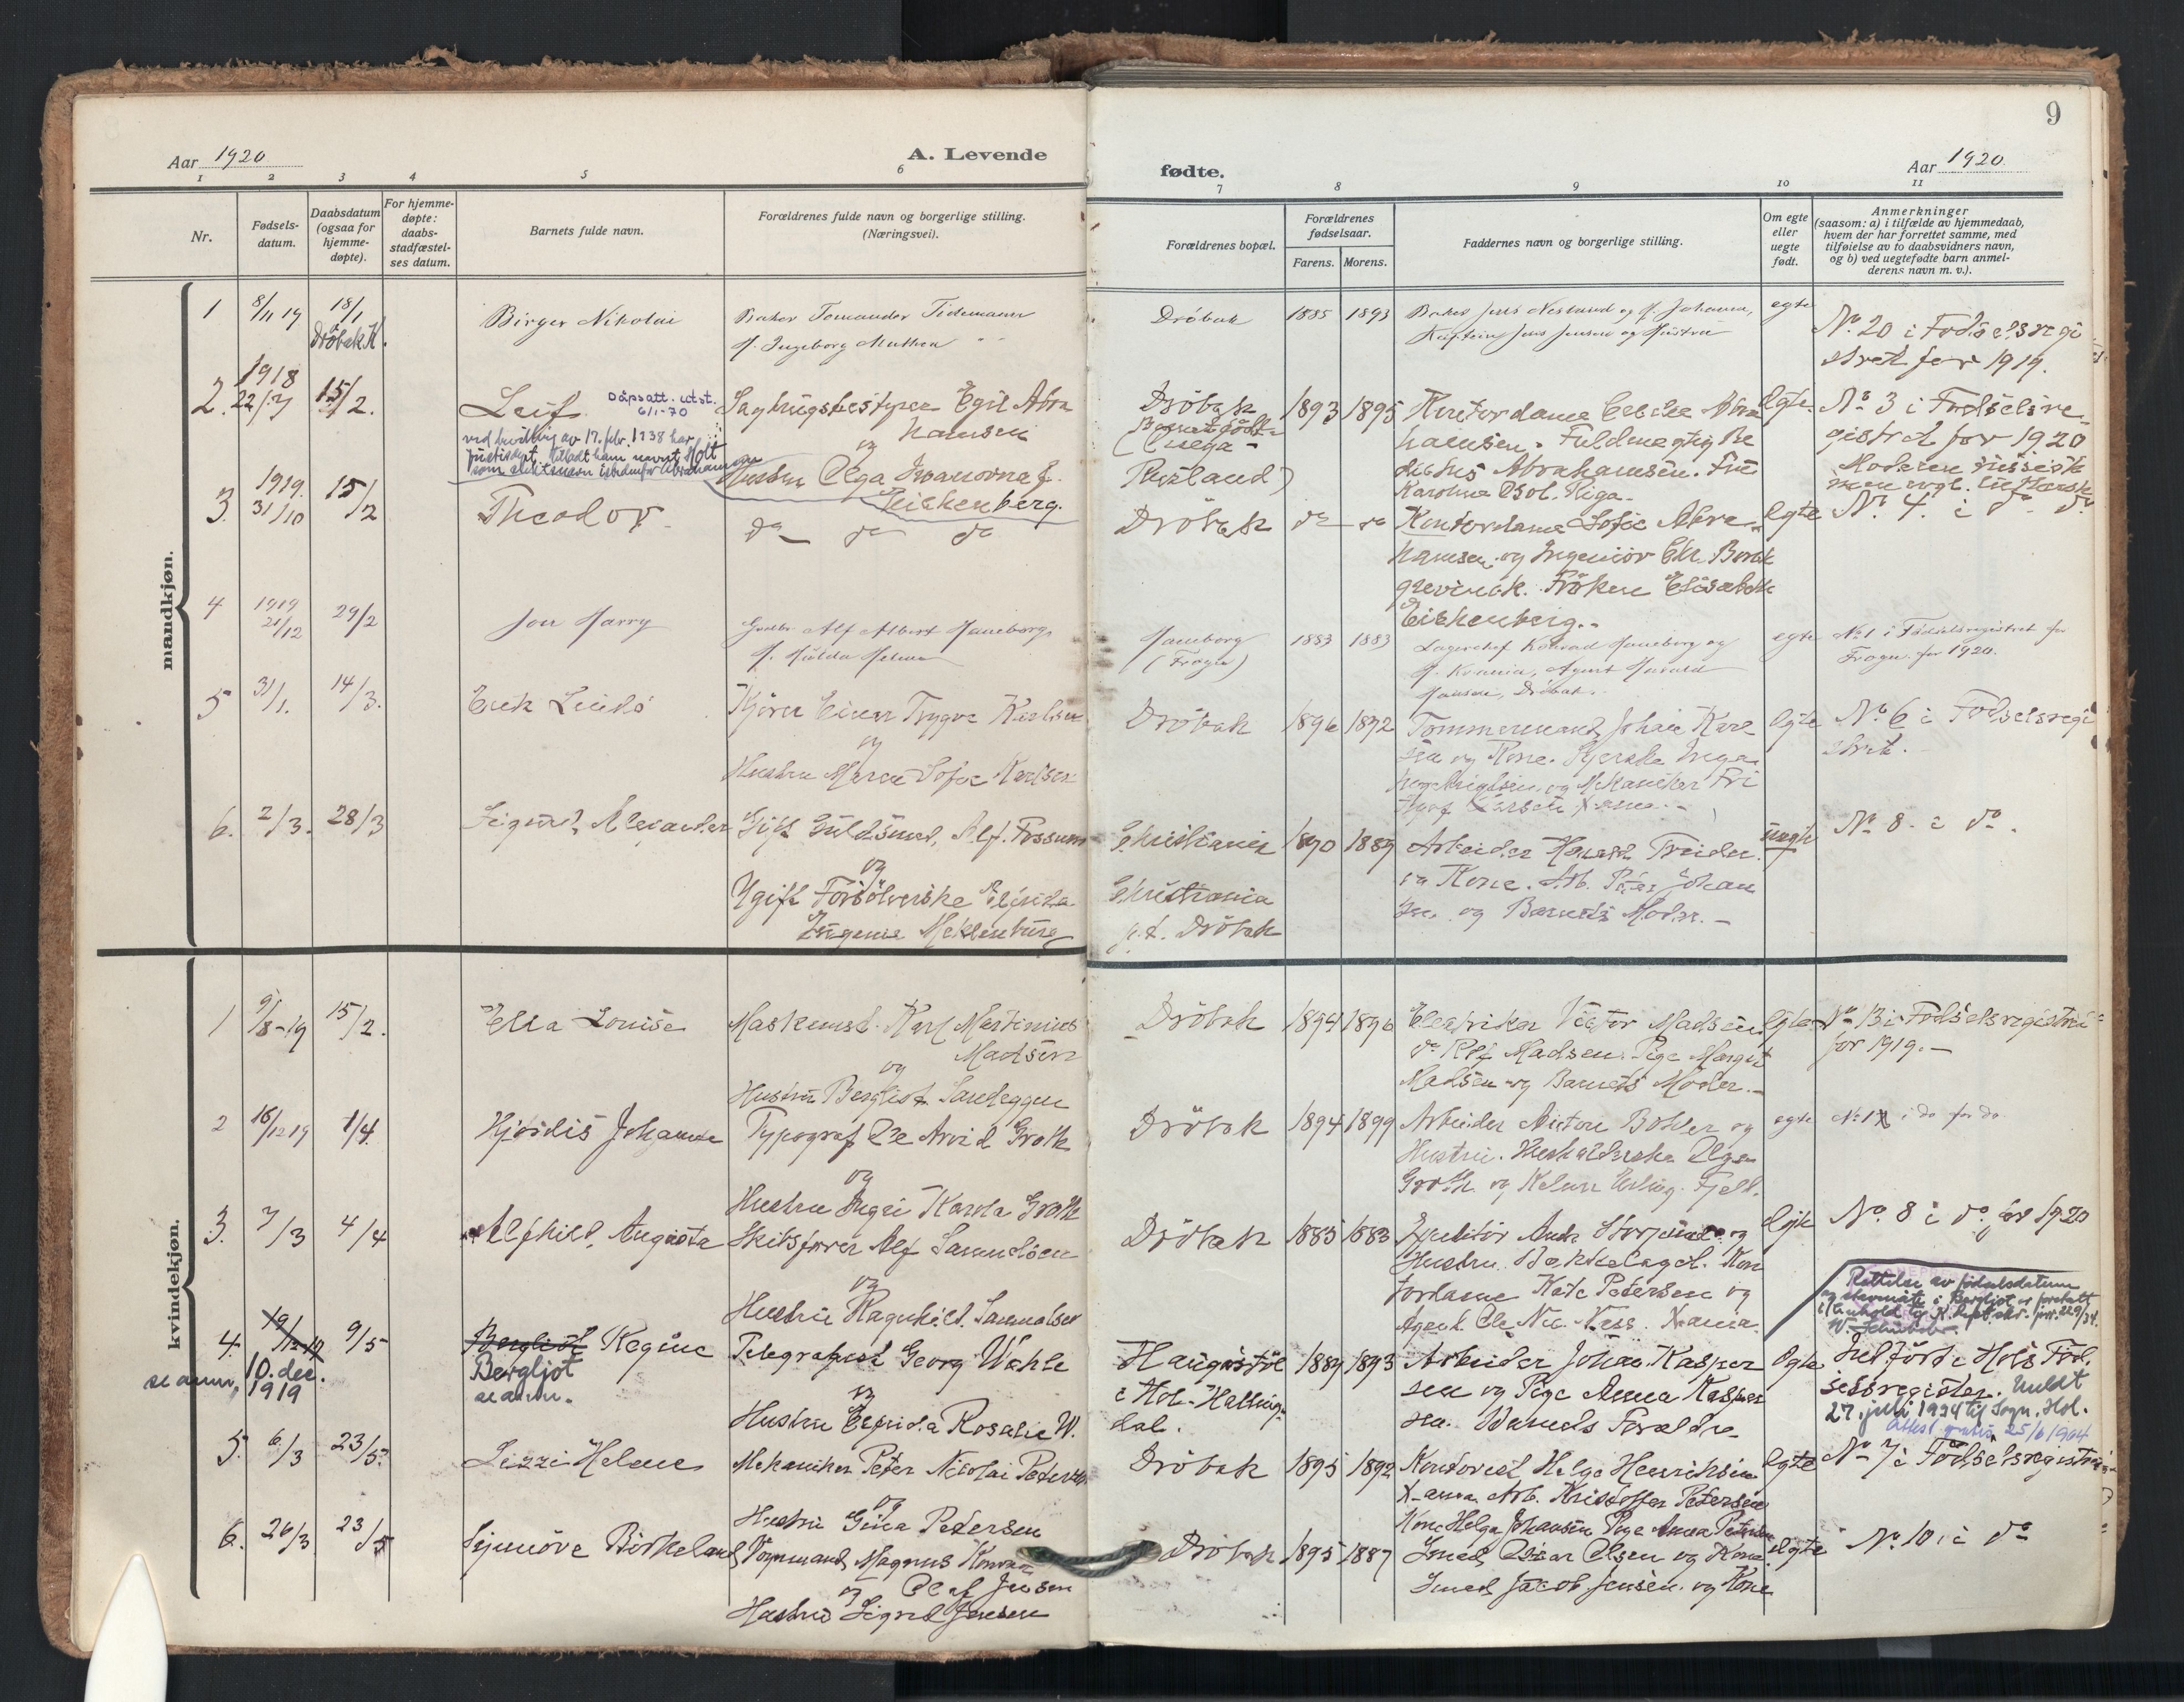 9
Aar 1920
A. Levende
fødte.
Aar 1920
1 2 3 4 5 6
7 8 9 10 11
Nr.
Fødsels-
datum.
Daabsdatum
(ogsaa for
hjemme-
døpte).
For hjemme-
døpte:
daabs-
stadfæstel-
ses datum.
Barnets fulde navn.
Forældrenes fulde navn og borgerlige stilling.
(Næringsvei).
Forældrenes bopæl.
Forældrenes
fødselsaar.
Farens. Morens.
Faddernes navn og borgerlige stilling.
Om egte
eller
uegte
født.
Anmerkninger
(saasom: a) i tilfælde av hjemmedaab,
hvem der har forrettet samme, med
tilføielse av to daabsvidners navn,
og b) ved uegtefødte barn anmel-
derens navn m. v.).
mandkjøn.
1 8/11 19 18/1
Drøbak K.
Birger Nikolai
Baker Tomander Tidemann
H. Ingeborg Mathea
Drøbak 1885 1893
Baker Jens Neslund og H. Johanna,
Kaptein Jens Jensen og Hustru
egte
No. 20 i Fødselsregi
stret for 1919.
2. 1918 22/7 15/2.
Leif
Dåpsatt. utst.
6/1-70
ved bevilling av 17. febr. 1938 har
justisdept. tilladt ham navnet Holt
som slektsnavn istedenfor Abrahamsen
Sagbrugsbestyrer Egil Abra
hamsen
og
Hustru Olga Iwanovna f.
Eichenberg.
Drøbak
Rusland)
1893 1895
Kontordame Abra
hamsen. Fuldmegtig
Abrahamsen. Fru
Karoline Riga.
Egte.
No 3 i Fødselsre
gistret for 1920
Moderen russisk
3. 1919. 31/10 15/2
Theodor
do do do
Drøbak do do
Kontordame Sofie Abra
hamsen og Ingeniør Chr. Borch
grevink. Frøken Elisabeth
Eichenberg.
Egte
No. 4. i do do
4 1919 21/12 29/2
Jon Harry
Gaardbr. Alf Albert Haneborg,
H. Hulda Helene
Haneborg
(Frogn)
1883 1883
Lagerchef Konrad Haneborg og
H. Agent Harald
Hansen, Drøbak.
egte
No 1 i Fødselsregistret for
Frogn for 1920.
5 31/1. 14/3.
Erik Leidø
Kjører Einar Trygve Karlsen
og
Hustru Maren Sofie Karlsen
Drøbak 1896 1892
Tømmermand Johan Karl
sen og Kone. Syerske Inga
og Mekaniker Fri
tjof
Egte
No 6 i Fødselsregi
stret.
6. 2/3. 28/3
Sigurd Alexander
Gift Guldsmed, Alf. Fossum
og
Ugift Forsølverske Elfrida
Eugenie Meklenburg
Christiania
Christiania
p.t. Drøbak
1890 1889
Arbeider
og Kone. Arb. Peter Johan
sen og Barnets Moder.
uegte
No 8. i do.
kvindekjøn.
1 9/8-19 15/2.
Ella Louise
Maskinist. Karl Martinius
Madsen
og
Hustru Bergliot Sandeggen
Drøbak 1894 1896
Elektriker Victor Madsen
do Rolf Madsen. Pige Margit
Madsen og Barnets Moder.
Egte
No 13 i Fødselsregistret
for 1919.
2 16/12 19 1/4.
Hjørdis Johanne
Typograf Ole Arvid Groth
og
Hustru Ingri Karola Groth
Drøbak 1894 1899
Arbeider Anton Bohler og
Hustru. Husholderske Olga
Groth og Kelner Erling Fjell.
egte
No 17 i do for do
3. 7/3 4/4
Alfhild, Augusta
Skibsfører Alf Samuelsen
og
Hustru Ragnhild Samuelsen
Drøbak 1885 1883
Expeditør Anth Storjord og
Hustru. Kon
tordame Kate Petersen og
Agent Ole Nic. Næss. Xania.
Egte
No. 8 i do for 1920
4. 19/12 19 9/5
se anm. 10. dec.
1919
Bergliot Regine
Bergljot
se anm.
Telegrafist Georg Wahle
og
Hustru Elfrida Rosalie W.
Haugastøl
i Hol. Halling-
dal.
1889 1893
Arbeider Johan Kasper
sen og Pige Anna Kasper
sen. Barnets Forældre
Egte
Rettelse av fødselsdatum
og skrivemåte i Bergljot er foretatt
i henhold til K. dept. skr. jnr. 229/34.
Indført i Hols Fød
selsregister. Meldt
27. juli 1934 til Sogn. Hol.
Attest gratis 25/6 1964
5. 6/3 23/5.
Lizzi Helene
Mekaniker Peter Nicolai Petersen
og
Hustru Gina Petersen
Drøbak 1895 1892
Kontorist Helge Henriksen
X-ania. Arb. Kristoffer Petersen
Kone Helga Johansen Pige Anna Petersen
Egte
No 7 i Fødselsregistret
6. 26/3 23/5
Synnøve Birkeland
Vognmand Magnus Konrad
Olaf Jensen
og
Hustru Sigrid Jensen
Drøbak 1895 1887
Smed Oskar Olsen og Kone
Smed Jacob Jensen og Kone
Egte
No. 10 i do